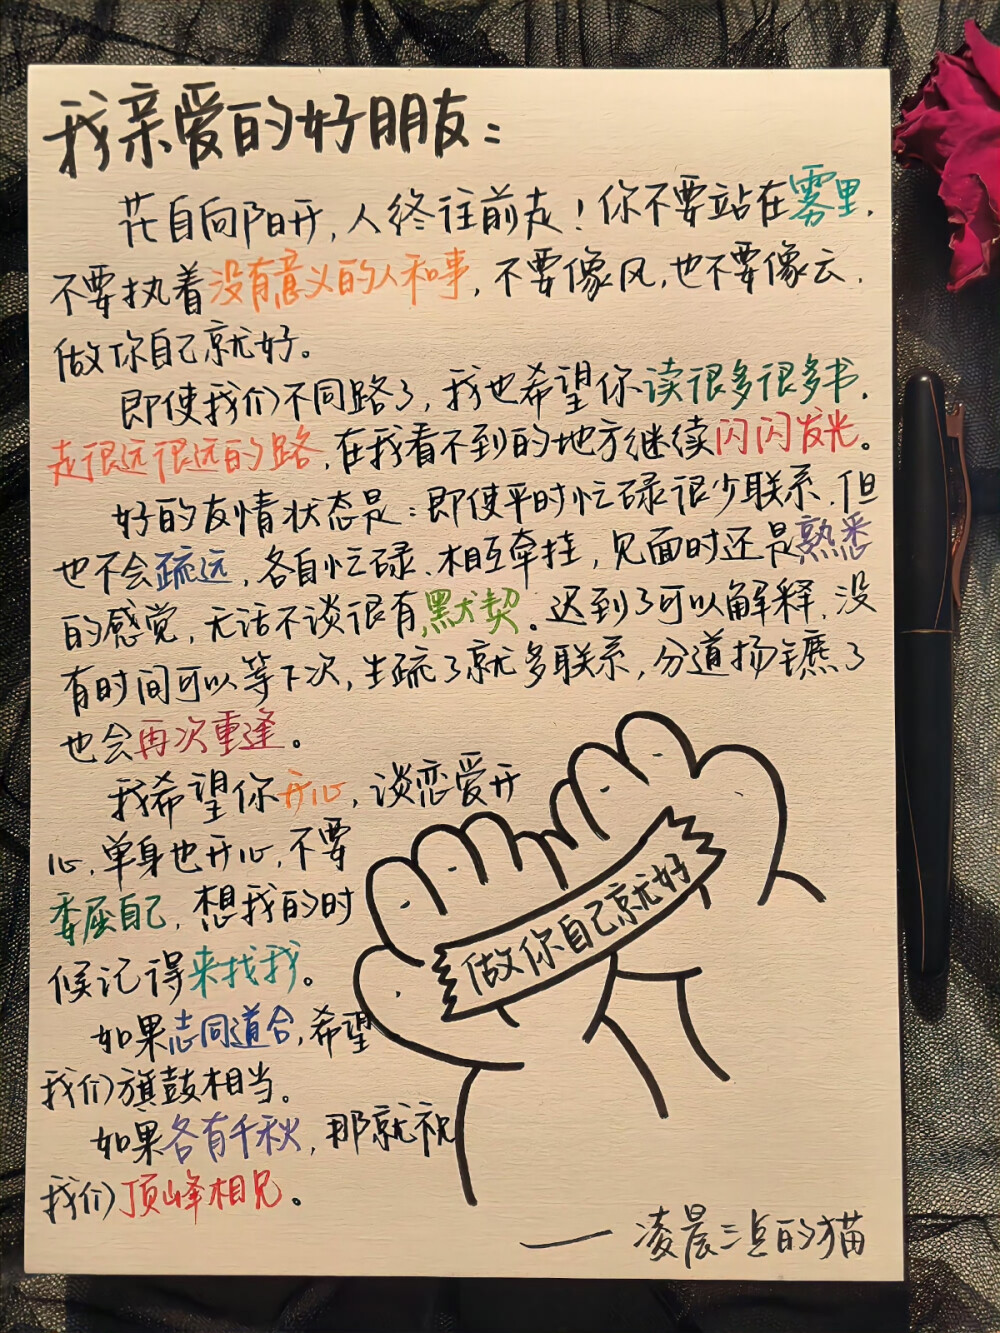 我亲爱的好朋友：
花自向阳开，人终往前走！你不要站在雾里，
不要执着没有意义的人和事，不要像风，也不要像云，
做你自己就好。
即使我们不同路了，我也希望你读很多很多书，
走很远很远的路，在我看不到的地方继续闪闪发光。
好的友情状态是：即使平时忙碌很少联系，但
也不会疏远，各自忙碌、相互牵挂，见面时还是熟悉
的感觉，无话不谈很有默契。迟到了可以解释，没
有时间可以等下次，生疏了就多联系，分道扬镳了
也会再次重逢。
我希望你开心，谈恋爱开
心，单身也开心，不要
委屈自己，想我的时
候记得来找我。
如果志同道合，希望
我们旗鼓相当。
如果各有千秋，那就祝
我们顶峰相见。
做你自己就好
——凌晨三点的猫